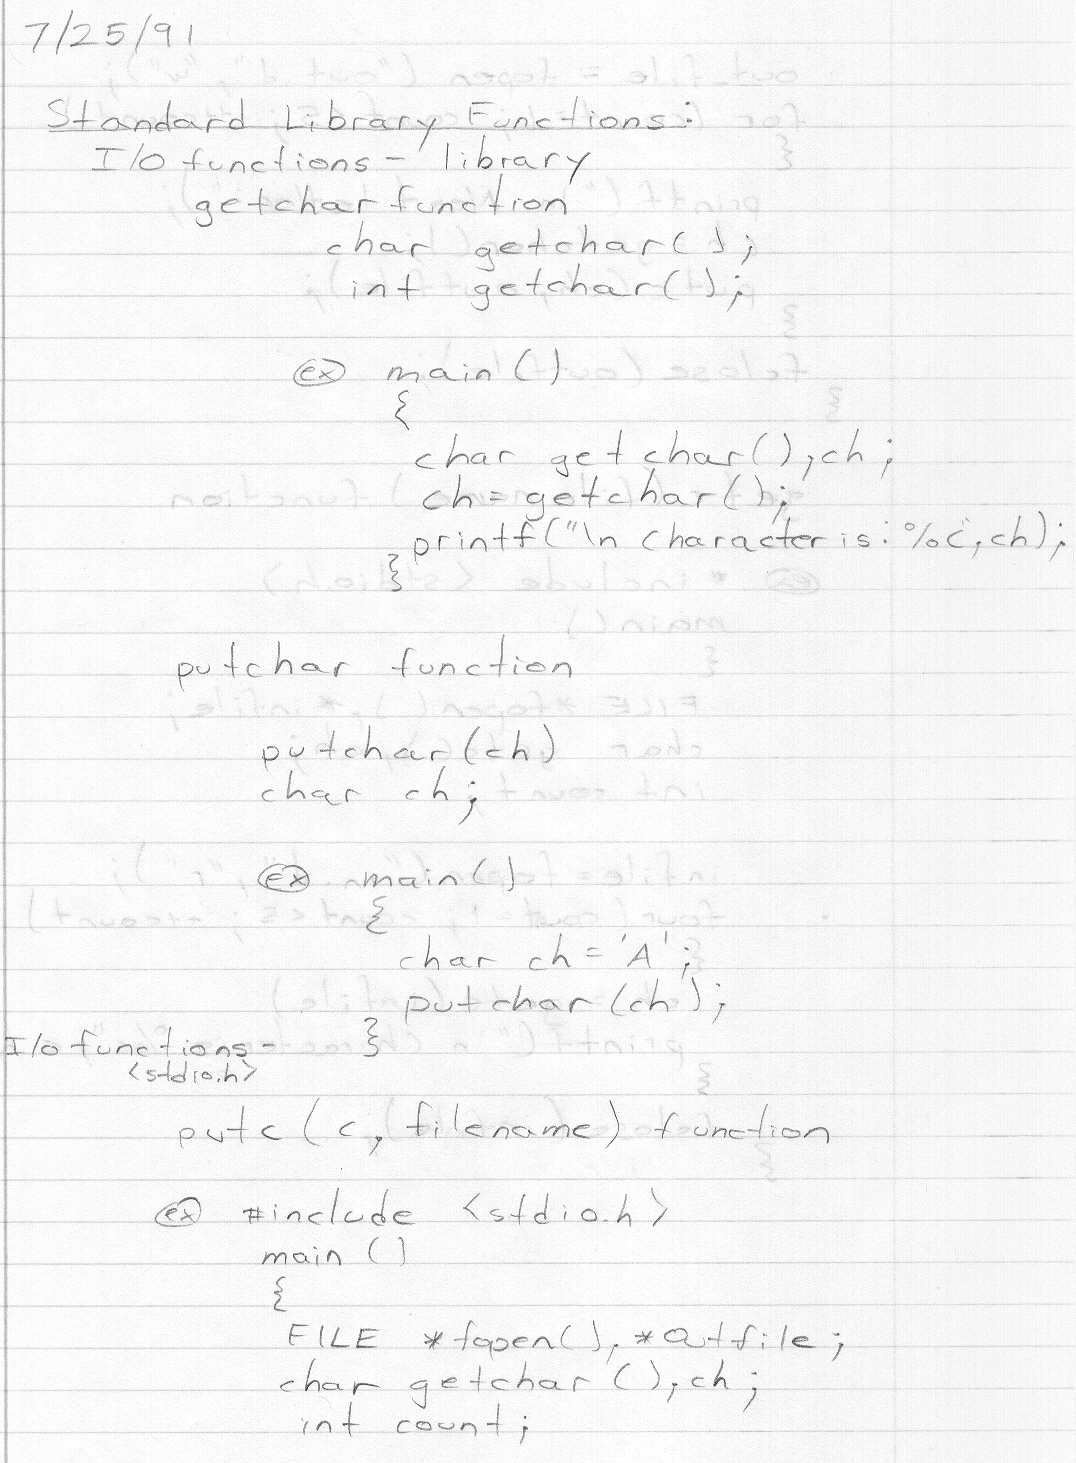 7/25/91
Standard Library Functions:
I/O functions - library
getchar function
char getchar();
int getchar();
ex main()
{
char getchar(),ch;
ch=getchar();
printf("\n character is: %c",ch);
}
putchar function
putchar(ch)
char ch;
ex main()
{
char ch='A';
putchar(ch);
}
I/O functions-
<stdio.h>
putc(c, filename) function
ex #include <stdio.h>
main()
{
FILE *fopen(), *outfile;
char getchar(),ch;
int count;